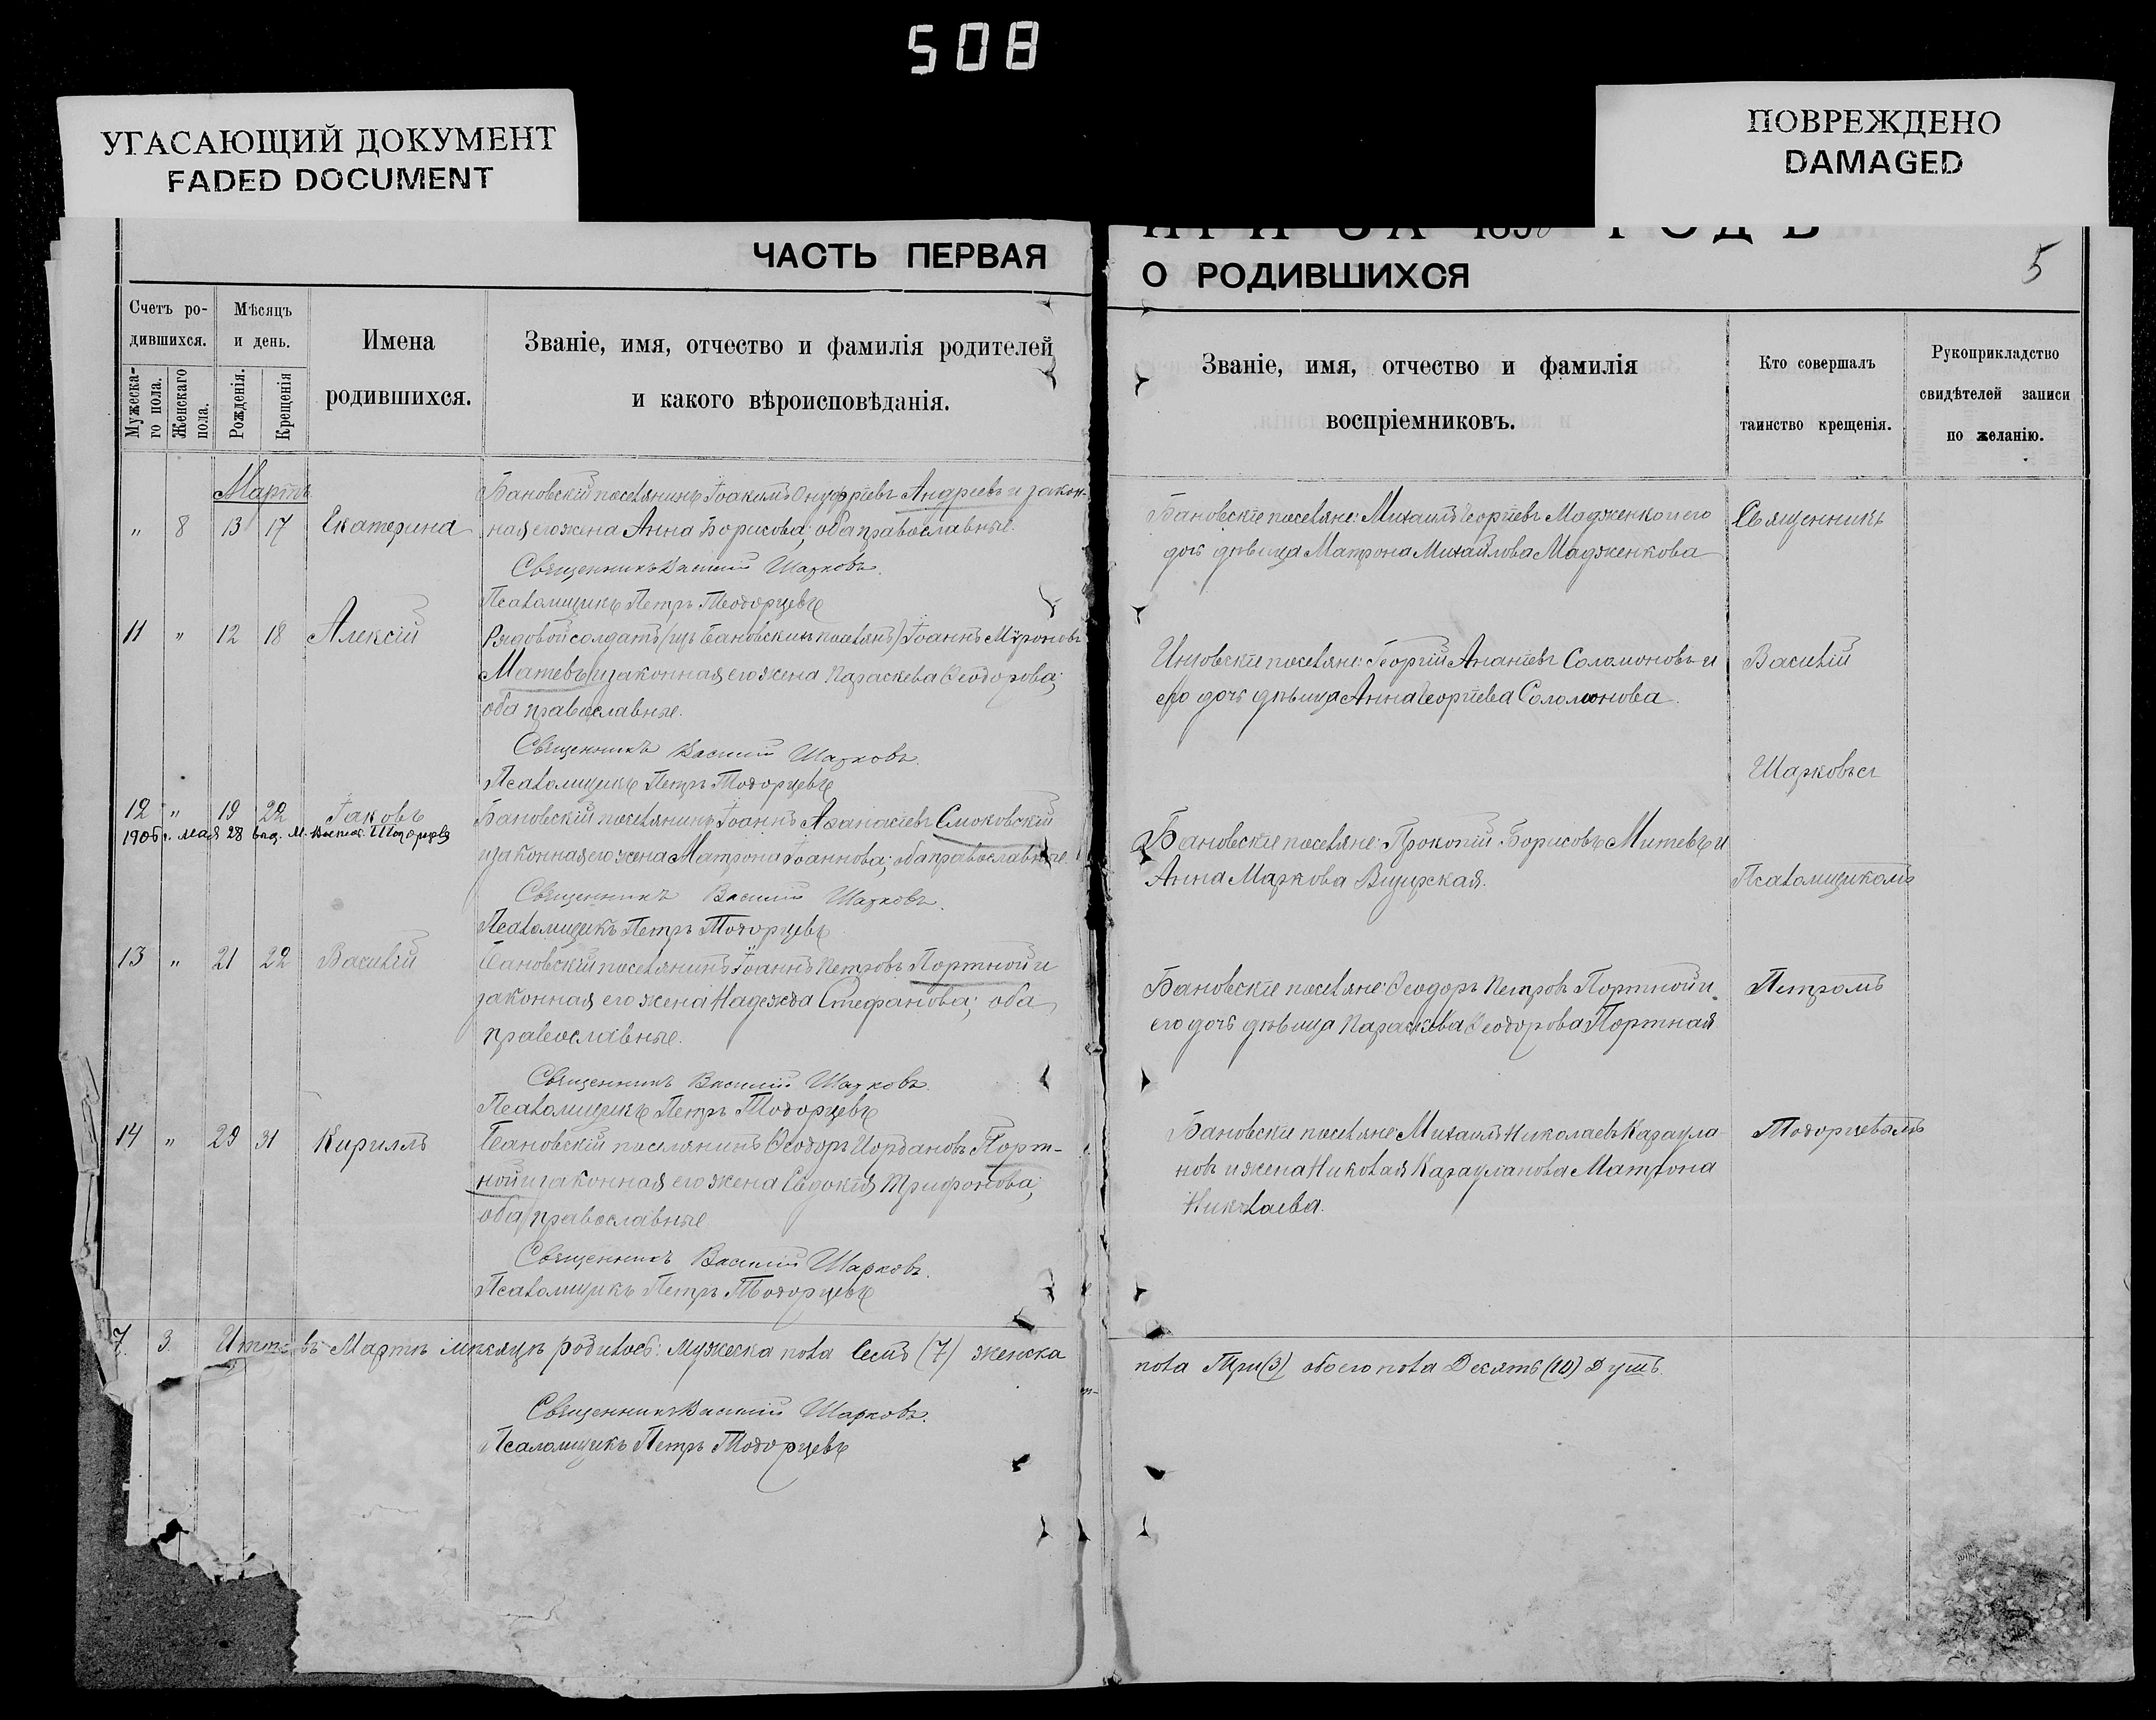 508
УГАСАЮЩИЙ ДОКУМЕНТ
FADED DOCUMENT
ПОВРЕЖДЕНО
DAMAGED
ЧАСТЬ ПЕРВАЯ
О РОДИВШИХСЯ
5
Счетъ ро-
дившихся.
Мужеска-
го пола.
Женскаго
пола.
Мѣсяцъ
и день.
Рожденія.
Крещенія
Имена
родившихся.
Званіе, имя, отчество и фамилія родителей
и какого вѣроисповѣданія.
Званіе, имя, отчество и фамилія
воспріемниковъ.
Кто совершалъ
таинство крещенія.
Рукоприкладство
свидѣтелей записи
по желанію.
Мартъ
„ 8 13 17 Екатерина
Бановскій поселянинъ Іоакимъ Онуфріевъ Андреевъ и закон-
ная его жена Анна Борисова; оба православные.
Священникъ Василій Шарковъ.
Псаломщикъ Петръ Тодорцевъ
Бановскіе поселяне: Михаилъ Георгіевъ Мадженко и его
дочь дѣвица Матрона Михайлова Мадженкова
Священникъ
11 „ 12 18 Алексій
Рядовой солдатъ (изъ Бановскихъ поселянъ) Іоаннъ Мѵроновъ
Матевъ и законная его жена Параскева Ѳеодорова;
оба православные.
Священникъ Василій Шарковъ.
Псаломщикъ Петръ Тодорцевъ
поселяне: Георгій Ананіевъ Соломоновъ и
его дочь дѣвица Анна Георгіева Соломонова.
Василій
Шарковъ съ
12 „ 19 22 Іаковъ
1906 г. мая 28
Бановскій поселянинъ Іоаннъ Аѳанасіевъ Смоковскій
и законная его жена Матрона Іоаннова; оба православные.
Священникъ Василій Шарковъ.
Псаломщикъ Петръ Тодорцевъ
Бановскіе поселяне: Прокопій Борисовъ Митевъ и
Анна Маркова
Псаломщикомъ
13 „ 21 22 Василій
Бановскій поселянинъ Іоаннъ Петровъ Портной и
законная его жена Надежда Стефанова; оба
православные.
Священникъ Василій Шарковъ.
Псаломщикъ Петръ Тодорцевъ
Бановскіе поселяне: Ѳеодоръ Петровъ Портной и
его дочь дѣвица Параскева Ѳеодорова Портная
Петромъ
14 „ 29 31 Кириллъ
Бановскій поселянинъ Ѳеодоръ Іордановъ Порт-
ной и законная его жена Евдокія Трифонова;
оба православные
Священникъ Василій Шарковъ.
Псаломщикъ Петръ Тодорцевъ
Бановскіе поселяне Михаилъ Николаевъ Караула-
новъ и жена Николая Карауланова Матрона
Николаева.
Тодорцевымъ
7. 3. Итого въ Мартѣ мѣсяцѣ родилось: мужеска пола семь (7) женска
пола Три (3) обоего пола Десять (10) Душъ.
Священникъ Василій Шарковъ.
Псаломщикъ Петръ Тодорцевъ